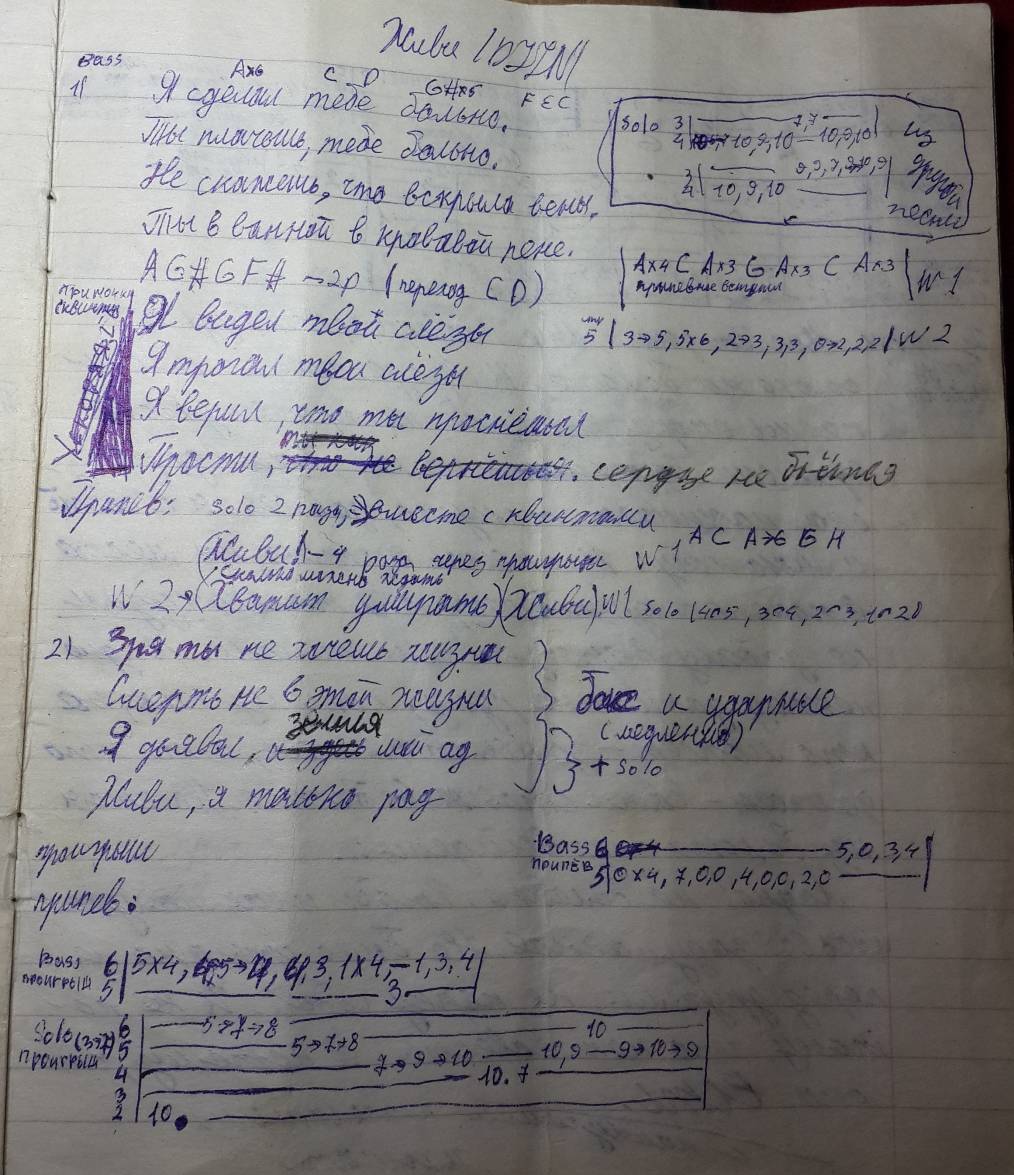 Живи
Bass
Ax6 C D G#x5 F E C
1) Я сделал тебе больно.
Ты плачешь, тебе больно.
Не скажешь, что вскрыла вены.
Ты в ванной в кровавой пене.
Solo 3| 7,7
4| 10,9,10 — 10,9,10|
3|
4| 10,9,10
из другой песни
A G# G F# – 2р (переход C D)
Ax4 C Ax3 G Ax3 C Ax3 | W1
припевное вступл
5 | 3→5, 5x6, 2→3, 3,3, 0→2,2,2 | W2
Я видел твои слёзы
Я трогал твои слёзы
Я верил, что ты проснёшься
Прости, что не вернёшься. сердце не бьётся
Припев: Solo 2 раза, → вместе с квинтами
(Живи!) – 4 раза через проигрыш W1
сколько можно ждать
W2 → (Хватит умирать) (Живи) W1 Solo
2) Зря ты не хочешь жизни
Смерть не в этой жизни
земля
Я дьявол, и здесь мой ад
Живи, я только рад
бас и ударные
(медленно)
+ Solo
проигрыш
припев:
Bass припев 6 5,0,3,4
5 0x4, 7,0,0, 4,0,0, 2,0
Bass проигрыш 6| 5x4, 3, 1x4, – 1,3,4
5| 3
Solo проигрыш
6 5→7→8 10
5 5→7→8 10,9 — 9→10→9
4 7→9→10 10. 7
3
2 10.